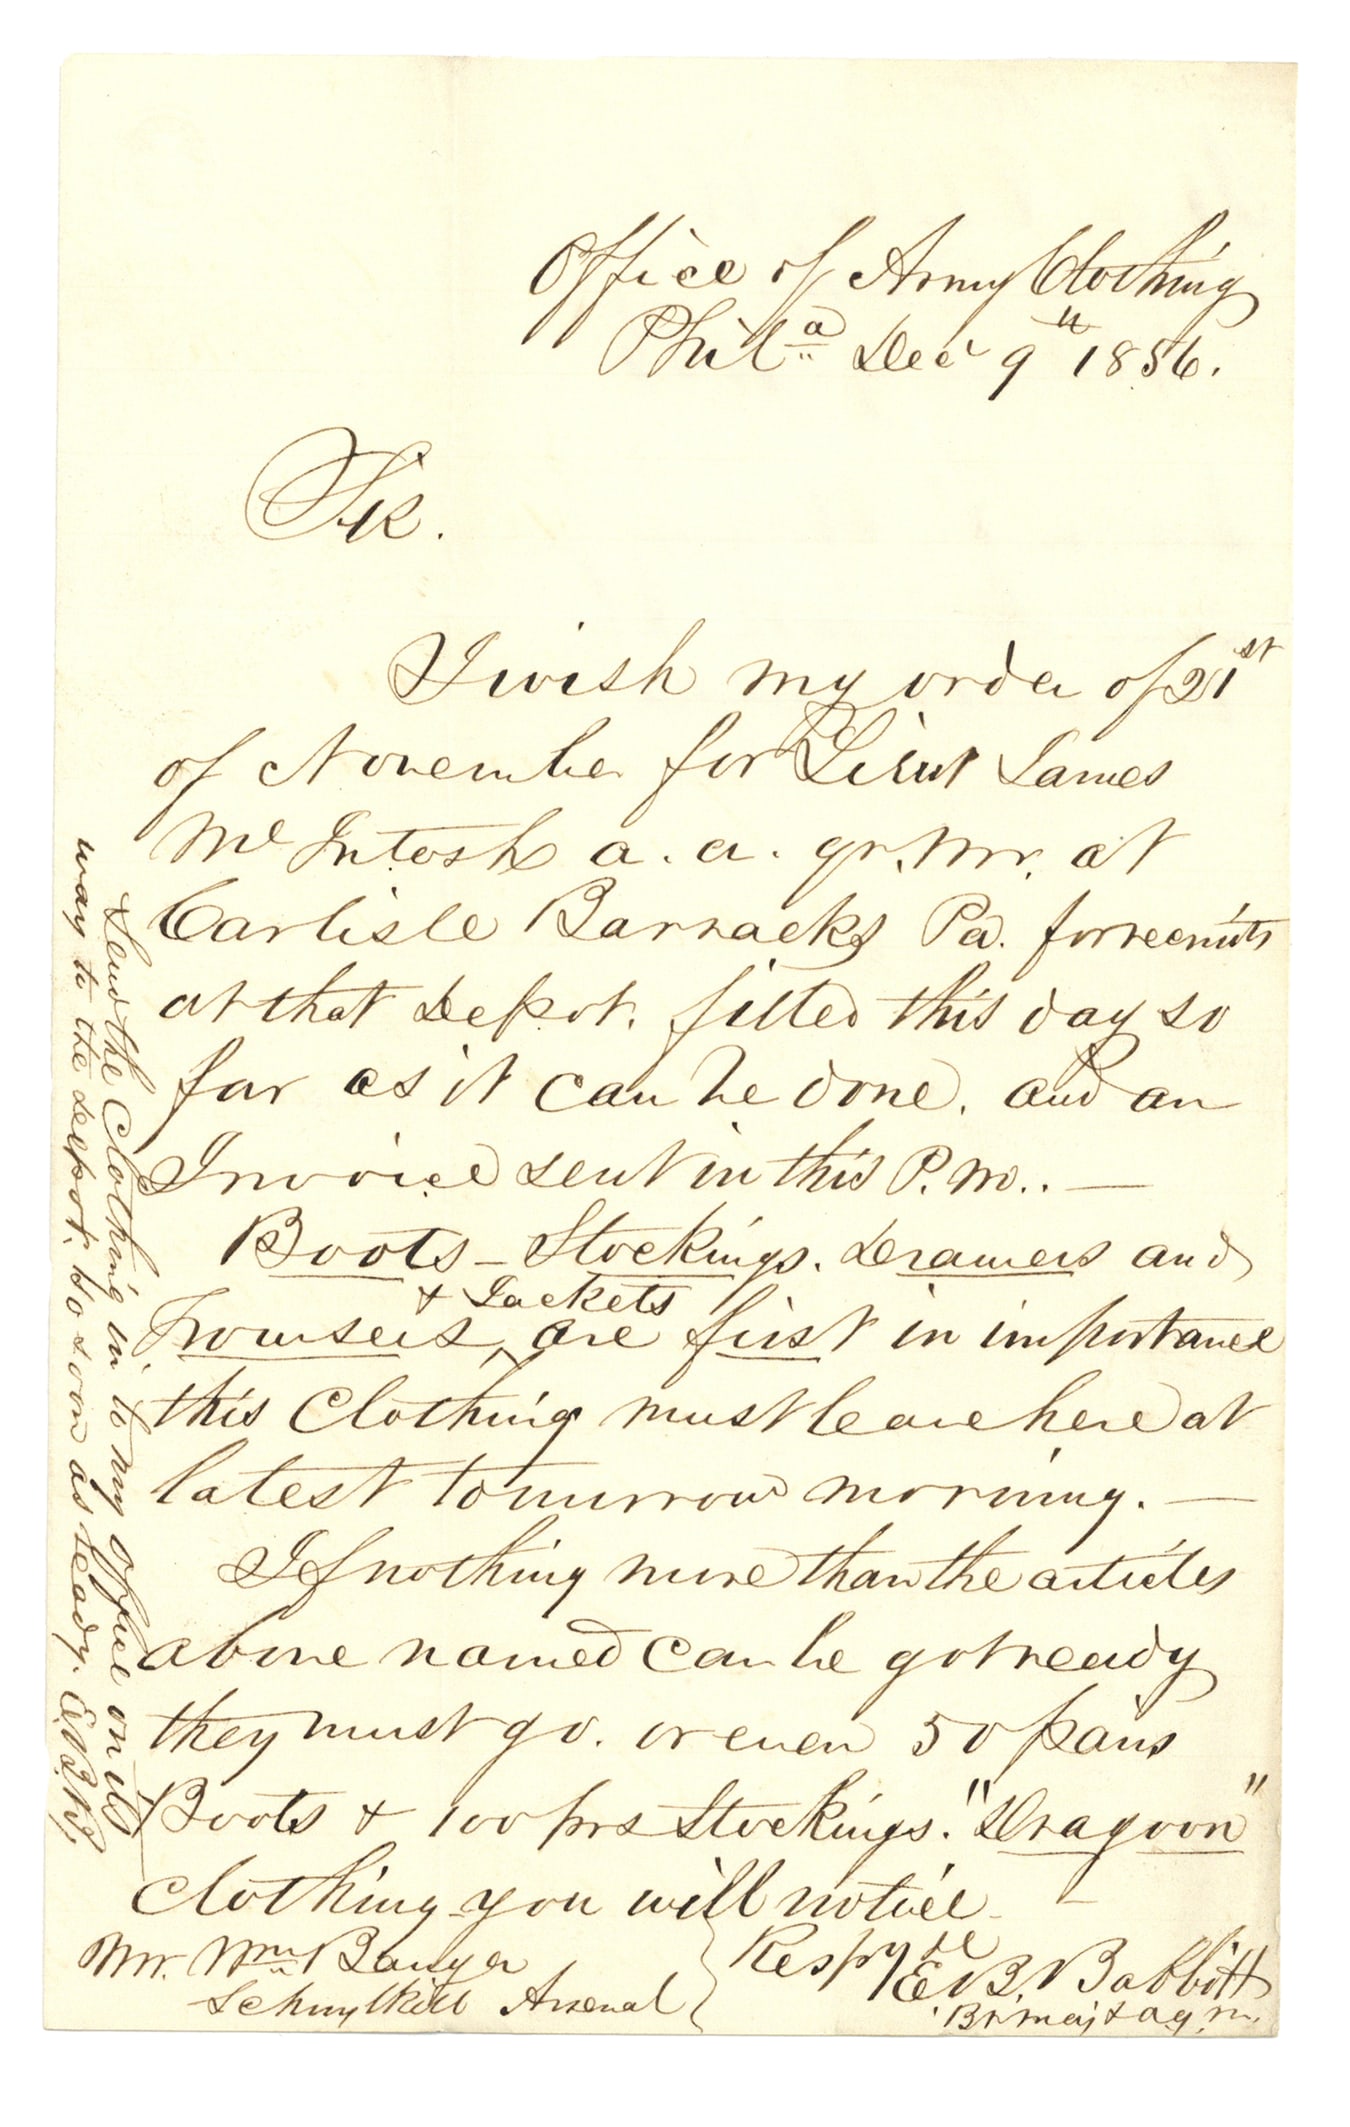 Office of Army Clothing
Phila Dec 9th 1856.
Sir.
I wish my order of 21st
of November for Lieut James
McIntosh a. a. qr. Mr. at
Carlisle Barracks Pa. for recruits
at that Depot. filled this day so
far as it can be done. and an
Invoice sent in this P.M.. —
Boots – Stockings. Drawers and
& Jackets
Trowsers, are first in importance
this Clothing must leave here at
latest tomorrow morning. —
If nothing more than the articles
above named can be got ready
they must go. or even 50 pairs
Boots & 100 prs Stockings. "Dragoon"
Clothing you will notice –
Respy &c
E B. Babbitt
Bt Maj & a q. m.
Mr. Wm Banger
Schuylkill Arsenal
Send the Clothing in to my office on its
way to the depot. so soon as ready. E.B.B.